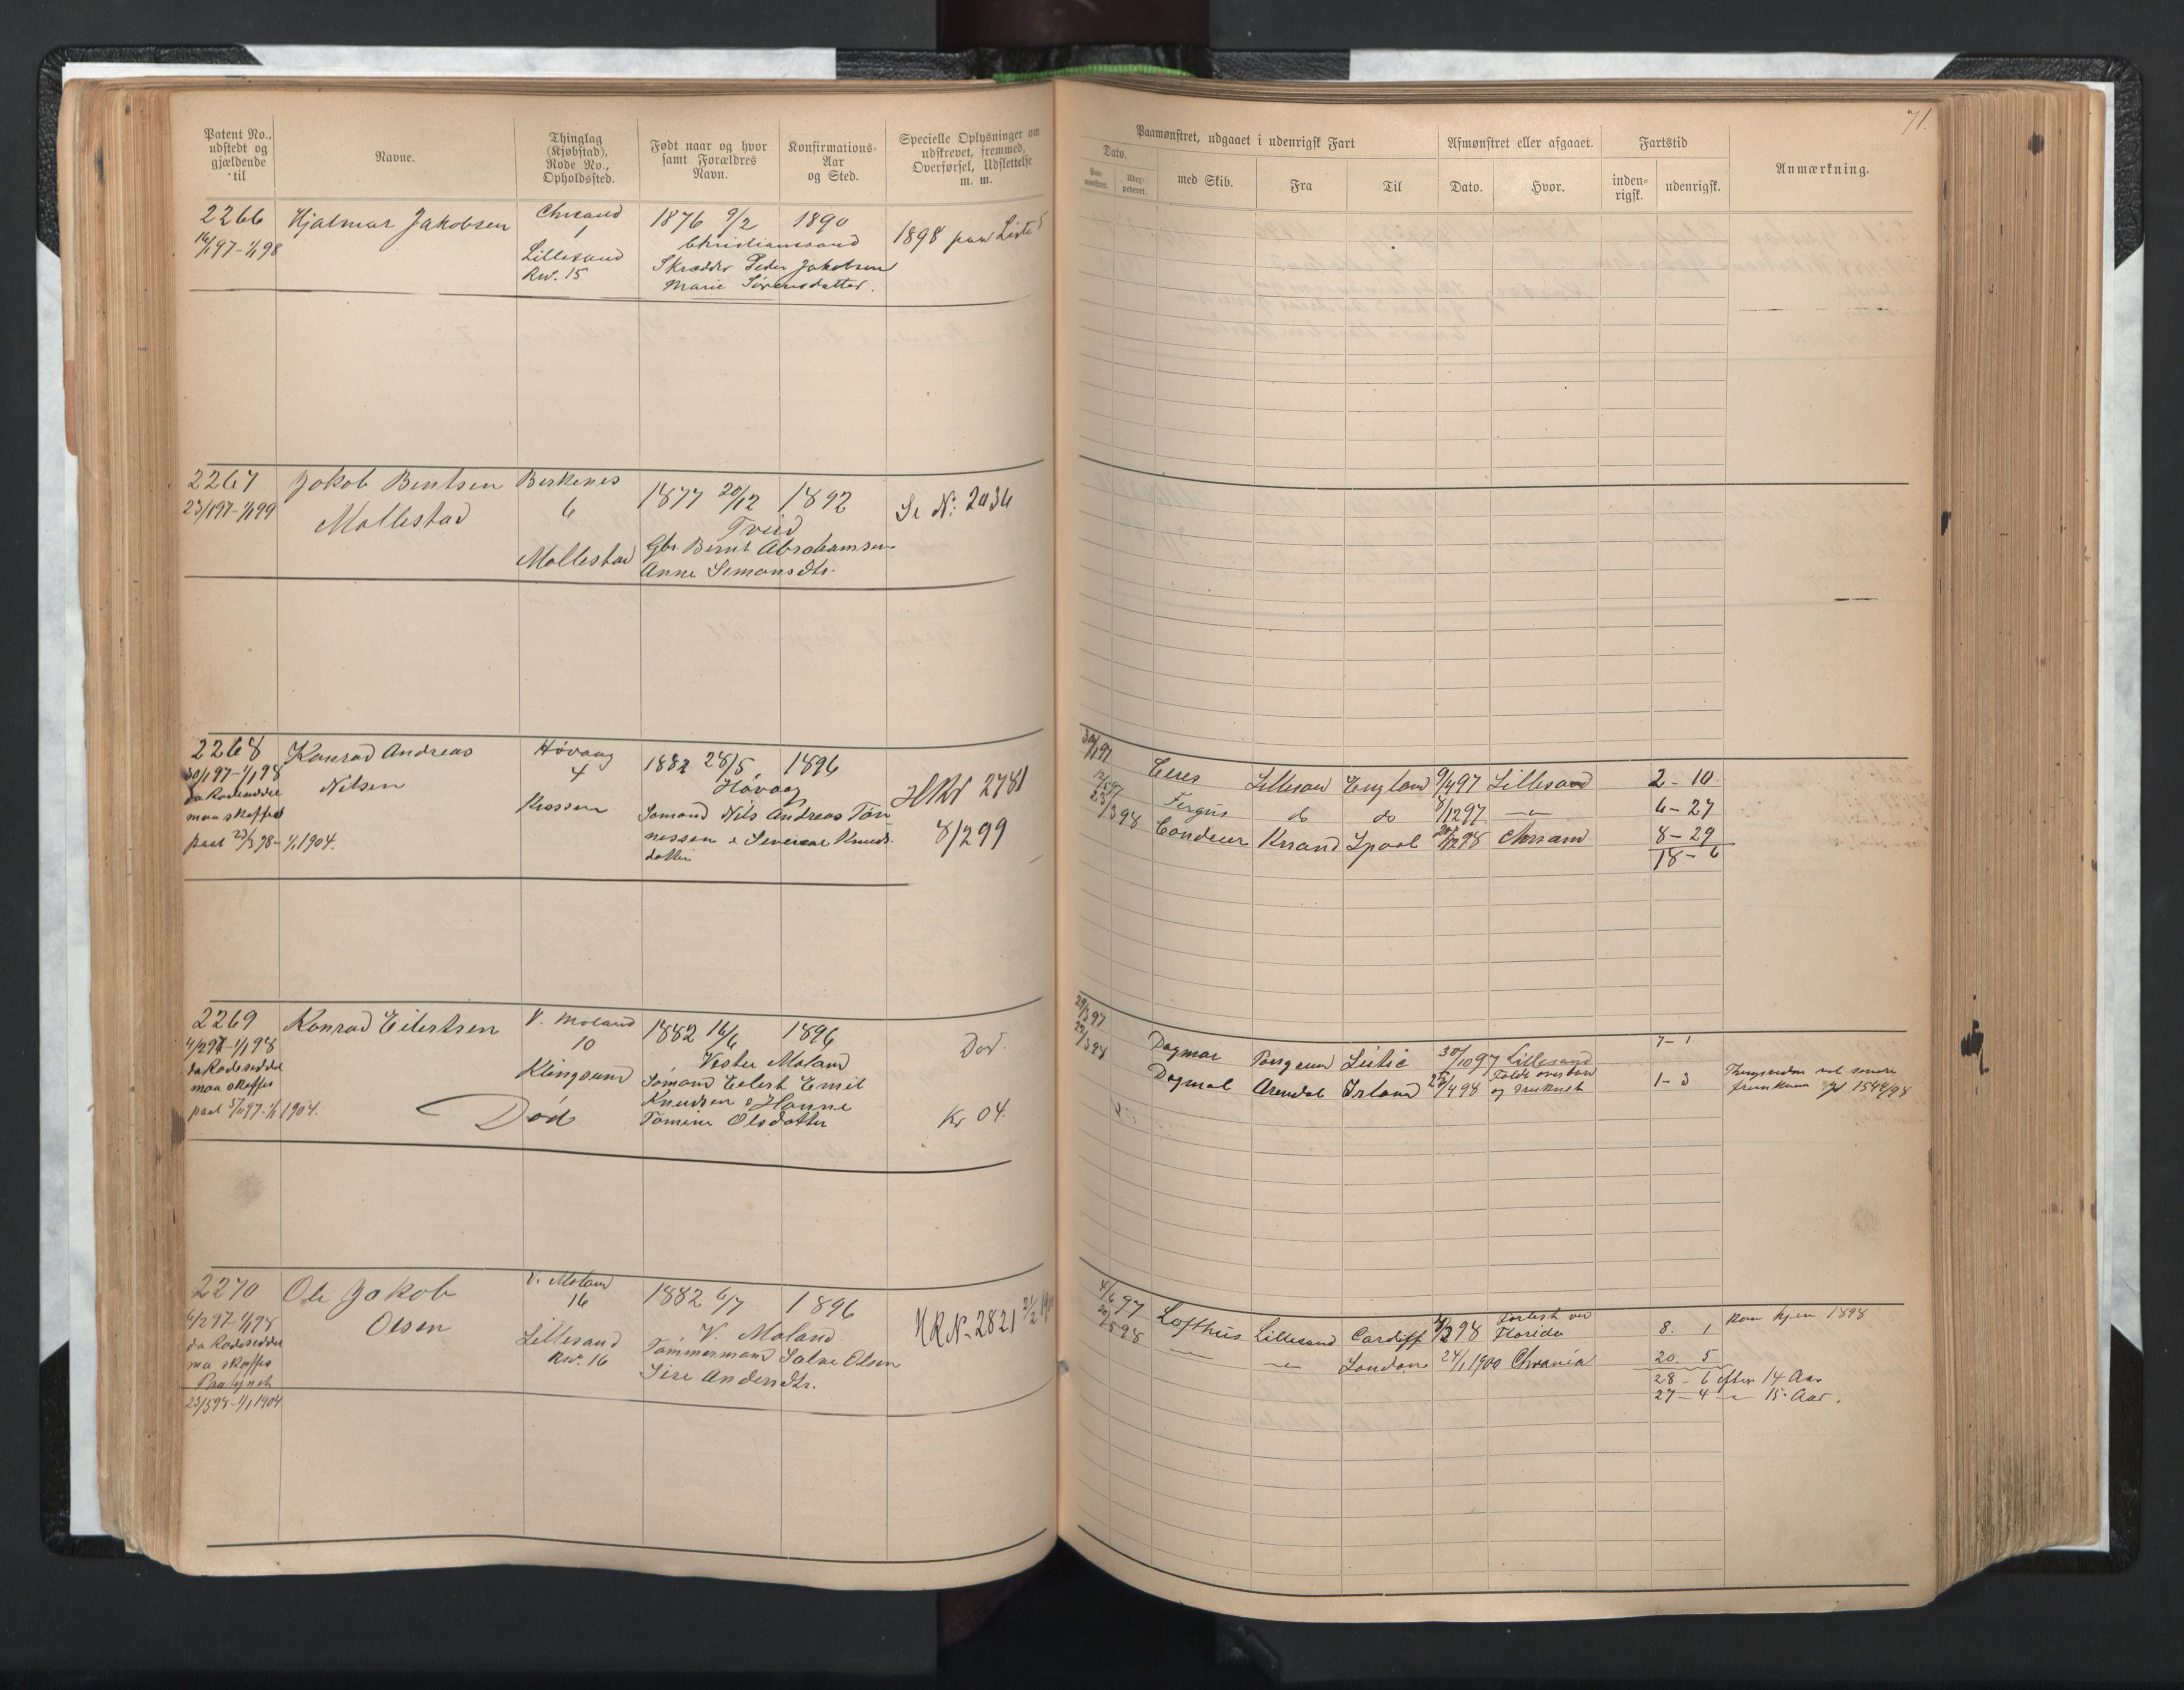 71.
Patent No., udstedt og gjældende til
Navne.
Thinglag (Kjøbstad), Rode No., Opholdssted.
Født naar og hvor samt Forældres Navn.
Konfirmations-Aar og Sted.
Specielle Oplysninger om udskrevet, fremmed, Overførsel, Udslettelse m. m.
Paamønstret, udgaaet i udenrigsk Fart
Dato.
Paa-mønstret.
Uderpederet.
med Skib.
Fra
Til
Afmønstret eller afgaaet.
Dato.
Hvor.
Fartstid
inden-rigsk.
udenrigsk.
Anmærkning.
2266 Hjalmar Jakobsen Chrsand 1876 9/2 1890
16/1 97 - 1/1 98 1 Christianssand 1898 paa Liste
Lillesand Skrædder Peder Jakobsen
Rw. 15 Marie Sørensdatter.
2267 Jakob Bentsen Berkenes 1877 20/12 1892
23/1 97 - 1/1 99 Mollestad 6 Tveid Se N: 2036
Mollestad Gbr Bernt Abrahamsen
Anne Simonsdtr.
2268 Konrad Andreas Høvaag 1882 28/5 1896
30/1 97 - 1/1 98 Nilsen 4 Høvaag
da Rodeseddel Krossen Sømand Nils Andreas Tøn
maa skaffes nessen & Severine Knuds
paat 23/3 98 - 1/1 1904. datter
HRN 2781
8/2 99
30/1 97 Ceres Lillesand England 9/4 97 Lillesand 2 - 10
12/5 97 Fergus do do 8/12 97 —"— 6 - 27
23/3 98 Condeur Krsand Lpool 20/12 98 Chrsand 8 - 29
18 - 6
2269 Konrad Eilertsen V. Moland 1882 16/6 1896
4/2 97 - 1/1 98 10 Vester Moland Død.
da Rodeseddel Klingsund Sømand Eilert Emil
maa skaffes Knudsen & Hanne
paat 5/11 97 - 1/1 1904. Død Tomine Olsdatter Kr 04.
29/3 97 Dagmar Lillesand 30/10 97 7 - 1
23/3 98 Dagmar Arendal Irland 25/4 98 og druknet 1 - 3
1544/98
2270 Ole Jakob V. Moland 1882 6/7 1896
6/2 97 - 1/1 98 Olsen 16 V. Moland HRN. 2821
da Rodeseddel Lillesand Tømmermand Salve Olsen
ma skaffes Rw. 16 Sire Andersdtr.
Paategnet
23/5 98 - 1/1 1904
4/6 97 Lofthus Lillesand Cardiff Forlist ved Florida 8. 1 Kom hjem 1898
5 98 — —"— London 24/1 1900 Chrania 20. 5
28 - 6 efter 14 Aar
27 - 4 —"— 15 Aar.